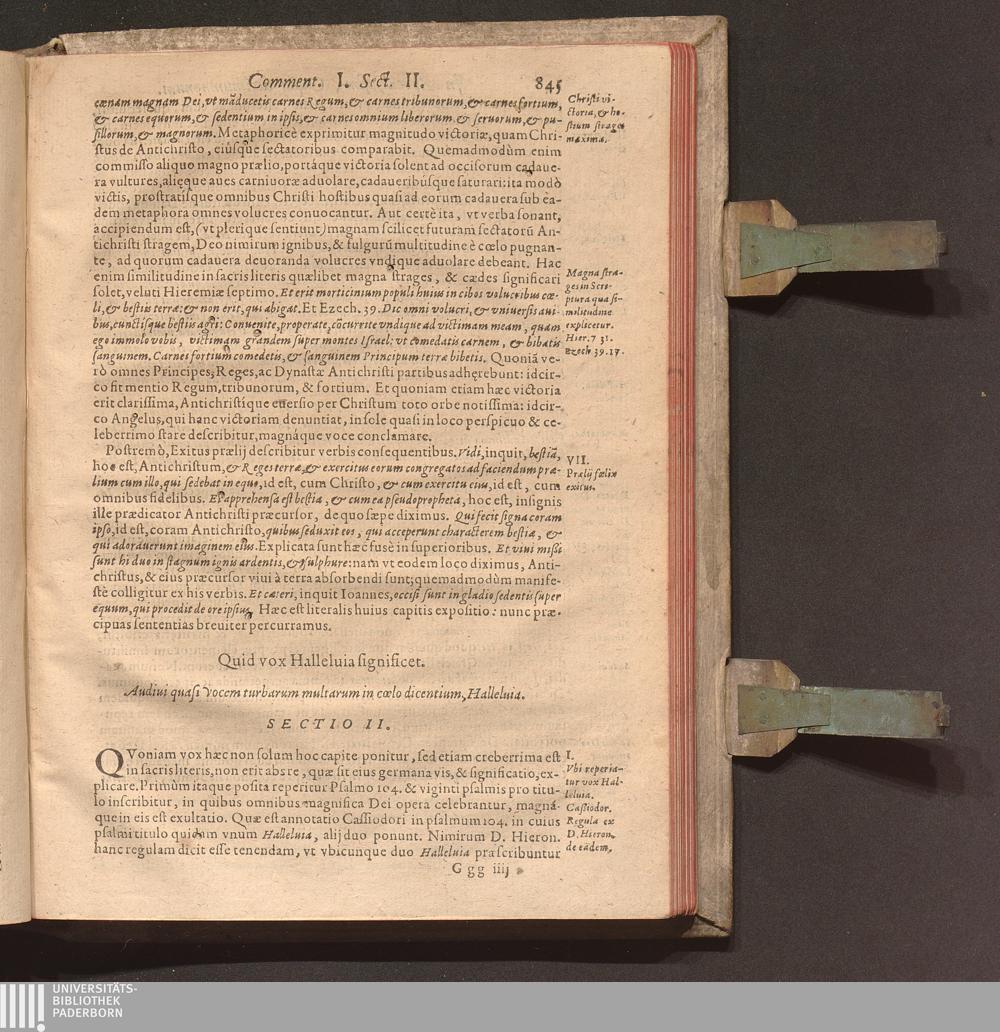 Comment. I. Sect. II. 845
cœnam magnam Dei, vt māducetis carnes Regum, & carnes tribunorum, & carnes fortium,
& carnes equorum, & sedentium in ipsis, & carnes omnium liberorum & seruorum, & pu-
sillorum, & magnorum. Metaphoricè exprimitur magnitudo victoriæ, quam Chri-
stus de Antichristo, eiúsque sectatoribus comparabit. Quemadmodùm enim
commisso aliquo magno prælio, portáque victoria solent ad occisorum cadaue-
ra vultures, alięque aues carniuoræ aduolare, cadaueribúsque saturari: ita modò
victis, prostratísque omnibus Christi hostibus quasi ad eorum cadauera sub eâ-
dem metaphora omnes volucres conuocantur. Aut certè ita, vt verba sonant,
accipiendum est, (vt plerique sentiunt) magnam scilicet futuram sectatorū An-
tichristi stragem, Deo nimirum ignibus, & fulgurū multitudine è cœlo pugnan-
te, ad quorum cadauera deuoranda volucres vndique aduolare debeant. Hac
enim similitudine in sacris literis quælibet magna strages, & cædes significari
solet, veluti Hieremiæ septimo. Et erit morticinium populi huius in cibos volucribus cœ-
li, & bestiis terræ: & non erit, qui abigat. Et Ezech. 39. Dic omni volucri, & vniuersis aui-
bus, cunctísque bestiis agri: Conuenite, properate, cōcurrite vndique ad victimam meam, quam
ego immolo vobis, victimam grandem super montes Israel: vt comedatis carnem, & bibatis
sanguinem. Carnes fortium comedetis, & sanguinem Principum terræ bibetis. Quoniā ve-
rò omnes Principes, Reges, ac Dynastæ Antichristi partibus adhęrebunt: idcir-
co fit mentio Regum, tribunorum, & fortium. Et quoniam etiam hæc victoria
erit clarissima, Antichristíque euersio per Christum toto orbe notissima: idcir-
co Angelus, qui hanc victoriam denuntiat, in sole quasi in loco perspicuo & ce-
leberrimo stare describitur, magnáque voce conclamare.
Postremò, Exitus prælij describitur verbis consequentibus. Vidi, inquit, bestiā,
hoc est, Antichristum, & Reges terræ, & exercitus eorum congregatos ad faciendum præ-
lium cum illo, qui sedebat in equo, id est, cum Christo, & cum exercitu eius, id est, cum
omnibus fidelibus. Et apprehensa est bestia, & cum ea pseudopropheta, hoc est, insignis
ille prædicator Antichristi præcursor, de quo sæpe diximus. Qui fecit signa coram
ipso, id est, coram Antichristo, quibus seduxit eos, qui acceperunt characterem bestiæ, &
qui adorauerunt imaginem eius. Explicata sunt hæc fusè in superioribus. Et viui missi
sunt hi duo in stagnum ignis ardentis, & sulphure: nam vt eodem loco diximus, Anti-
christus, & eius præcursor viui à terra absorbendi sunt; quemadmodùm manife-
stè colligitur ex his verbis. Et cæteri, inquit Ioannes, occisi sunt in gladio sedentis super
equum, qui procedit de ore ipsius. Hæc est literalis huius capitis expositio: nunc præ-
cipuas sententias breuiter percurramus.
Christi vi-
ctoria, & ho-
stium strages
maxima.
Magna stra-
ges in Scri-
ptura qua si-
militudine
explicetur.
Hier. 7 31.
Ezech 39. 17.
VII.
Prælij fœlix
exitus.
Quid vox Halleluia significet.
Audiui quasi vocem turbarum multarum in cœlo dicentium, Halleluia.
SECTIO II.
QVoniam vox hæc non solum hoc capite ponitur, sed etiam creberrima est
in sacris literis, non erit abs re, quæ sit eius germana vis, & significatio, ex-
plicare. Primùm itaque posita reperitur Psalmo 104. & viginti psalmis pro titu-
lo inscribitur, in quibus omnibus magnifica Dei opera celebrantur, magná-
que in eis est exultatio. Quæ est annotatio Cassiodori in psalmum 104. in cuius
psalmi titulo quidam vnum Halleluia, alij duo ponunt. Nimirum D. Hieron.
hanc regulam dicit esse tenendam, vt vbicunque duo Halleluia præscribuntur
I.
Vbi reperia-
tur vox Hal-
leluia.
Cassiodor.
Regula ex
D. Hieron.
de eâdem.
G gg iiij
UNIVERSITÄTS-
BIBLIOTHEK
PADERBORN